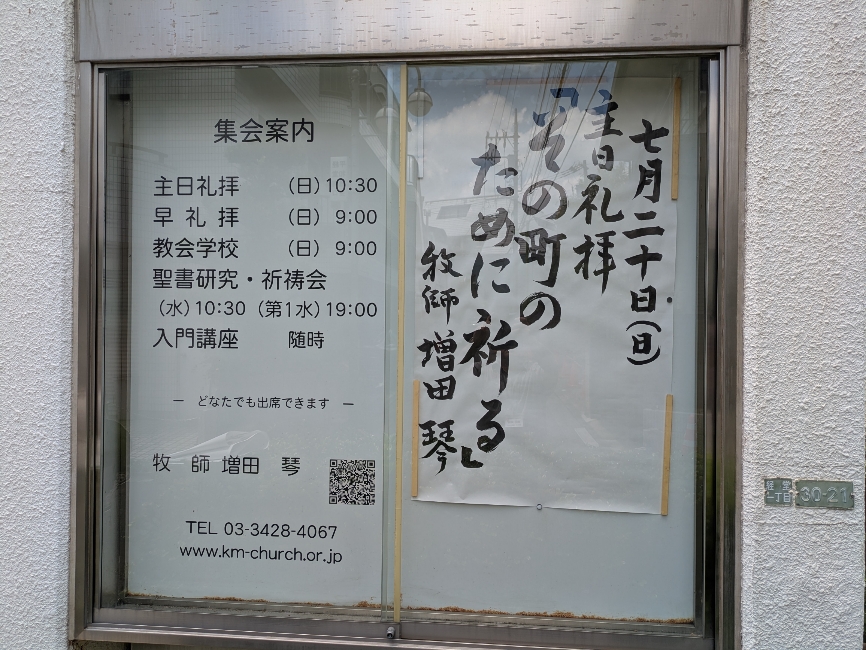 集会案内
主日礼拝 （日）10:30
早 礼 拝 （日） 9:00
教会学校 （日） 9:00
聖書研究・祈祷会
（水）10:30（第1水）19:00
入門講座 随時
― どなたでも出席できます ―
牧 師 増田 琴
TEL 03-3428-4067
www.km-church.or.jp
七月二十日（日）
主日礼拝
『その町の
ために祈る』
牧師 増田 琴
経堂
一丁目
30-21